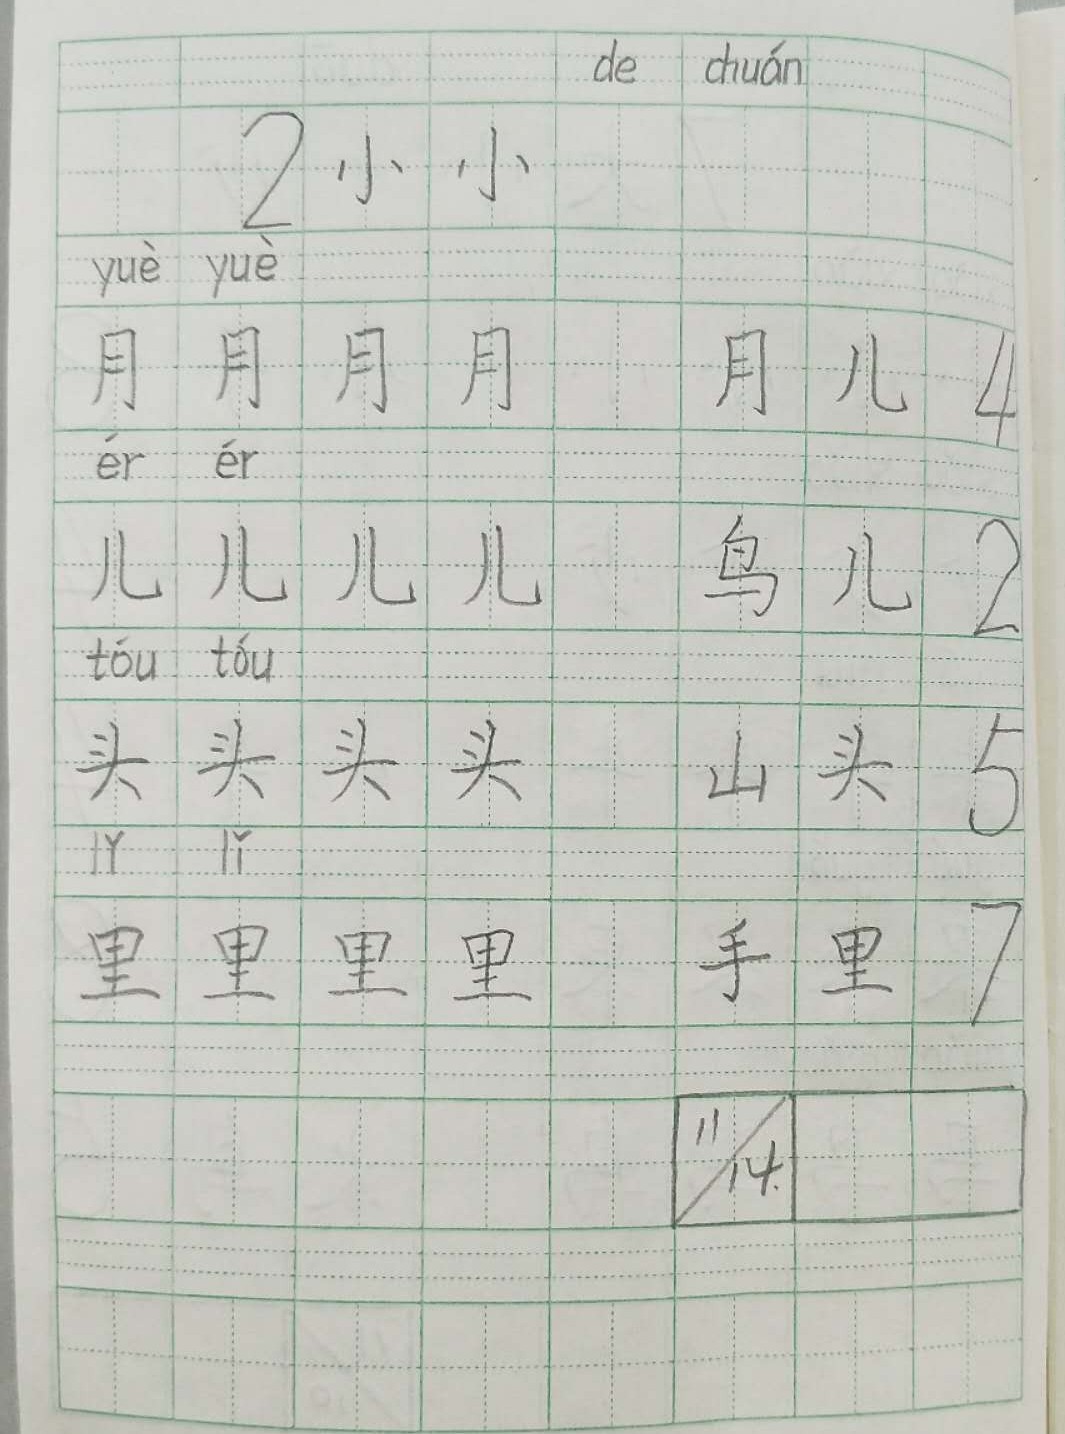 de chuán
2 小 小
yuè yuè
月 月 月 月 月 儿 4
ér ér
儿 儿 儿 儿 鸟 儿 2
tóu tóu
头 头 头 头 山 头 5
lǐ lǐ
里 里 里 里 手 里 7
11/14.